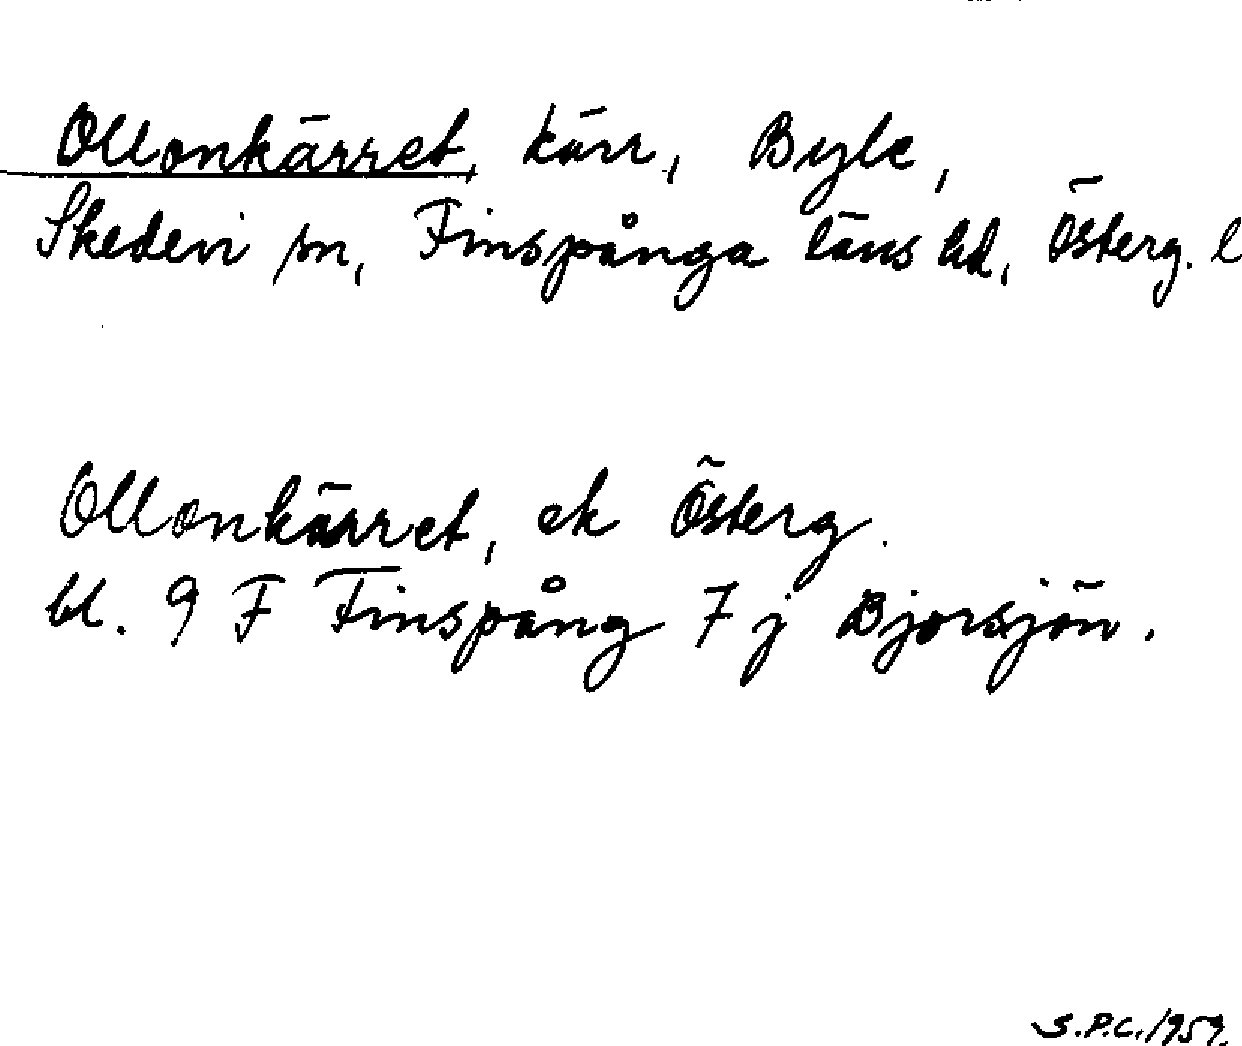 Ollonkärret, kärr, Byle,
Skedevi sn, Finspånga läns hd, Österg. l
Ollonkärret, ek Österg.
bl. 9 F Finspång 7 j Bjorsjön.
S.P.C. 1959.